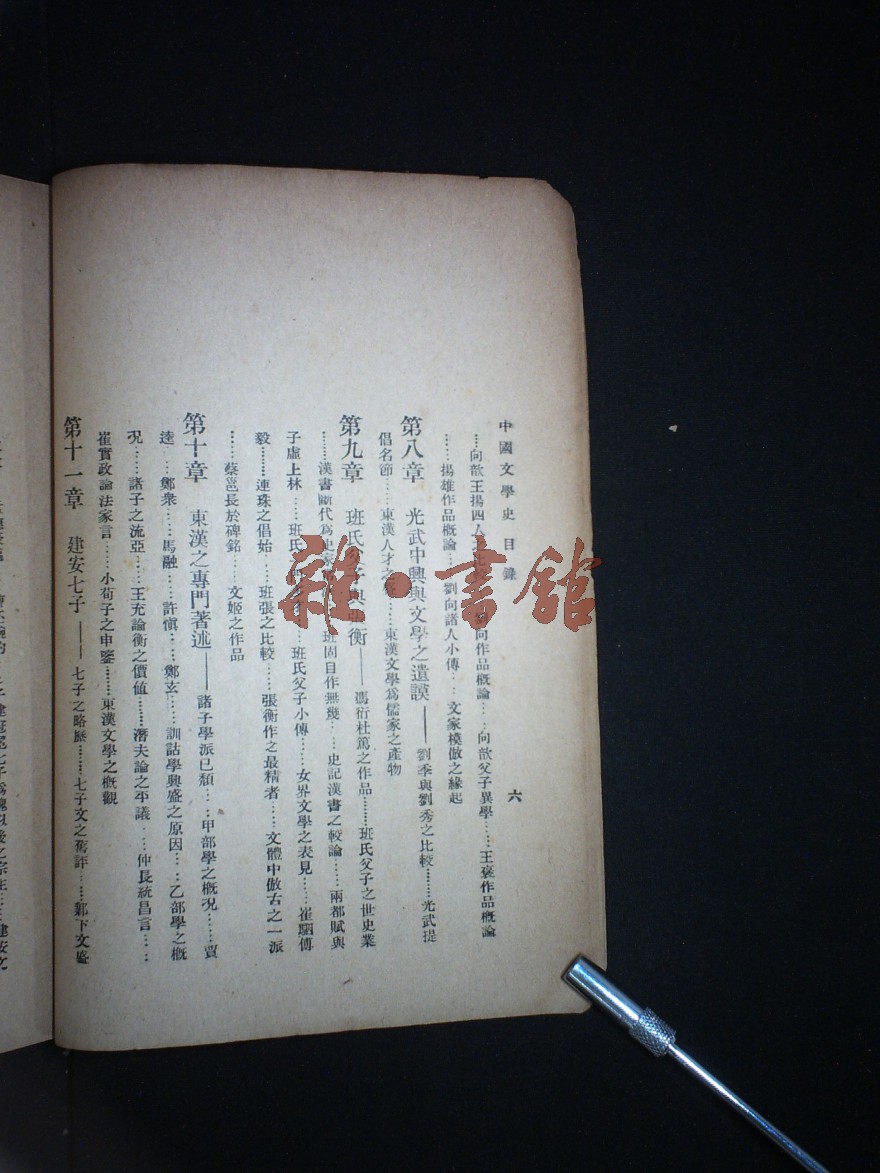 中國文學史 目錄 六
……向歆王揚四人 向作品概論……向歆父子異學……王褒作品概論
……揚雄作品概論 劉向諸人小傳……文家模倣之緣起
第八章 光武中興與文學之遺謨——劉季與劉秀之比較……光武提
倡名節……東漢人才之 ……東漢文學爲儒家之產物
第九章 班氏父子與 衡——馮衍杜篤之作品……班氏父子之世史業
……漢書斷代爲史家 班固自作無幾……史記漢書之較論……兩都賦與
子虛上林……班氏 班氏父子小傳……女界文學之表見……崔駰傅
毅……連珠之倡始……班張之比較……張衡作之最精者……文體中倣古之一派
……蔡邕長於碑銘……文姬之作品
第十章 東漢之專門著述——諸子學派已類……甲部學之概况……賈
逵……鄭衆……馬融……許慎……鄭玄……訓詁學興盛之原因……乙部學之概
况……諸子之流亞……王充論衡之價値……潛夫論之平議……仲長統昌言……
崔實政論法家言……小荀子之申鑒……東漢文學之概觀
第十一章 建安七子——七子之略歷……七子文之舊評……鄴下文盛
雜·書館